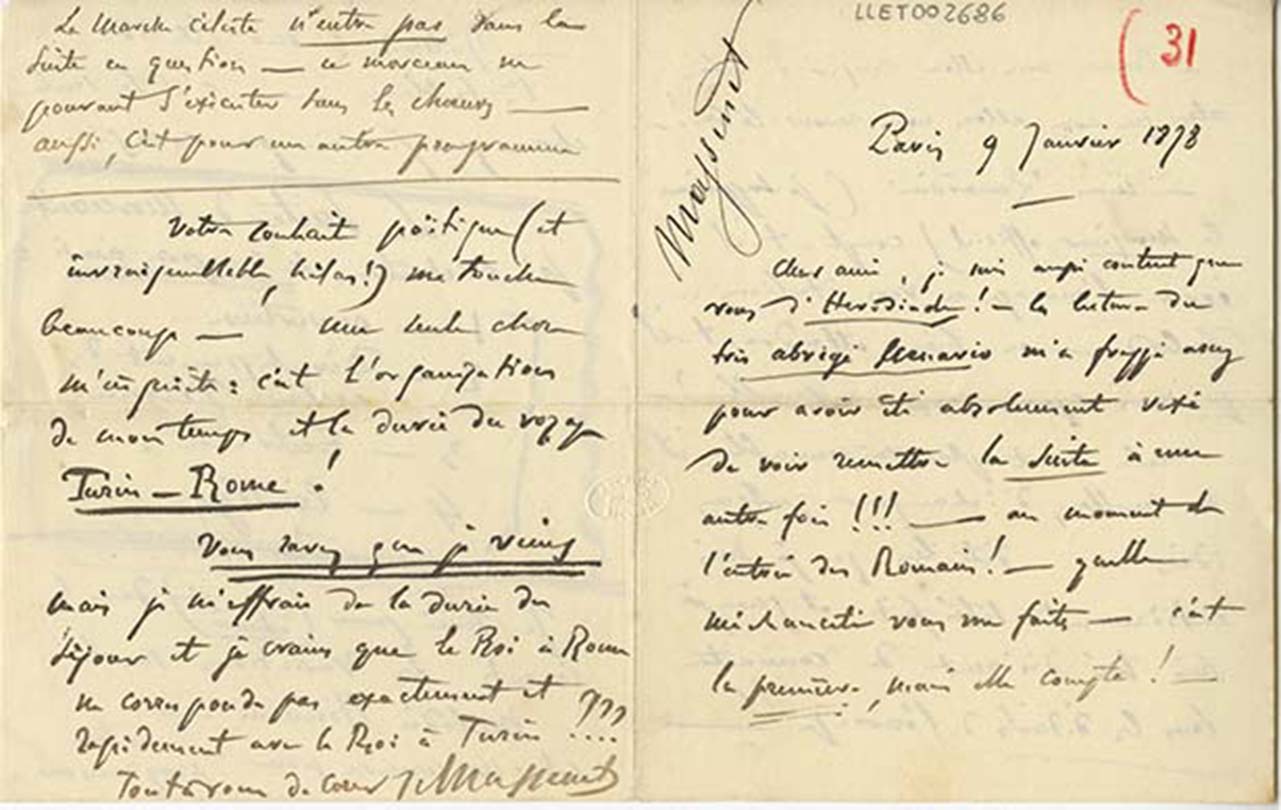 LLET002686
(31
Massenet
Paris 9 Janvier 1878
Cher ami, je suis aussi content que
vous d'Hérodiade! – la lecture du
très abrégé scenario m'a frappé assez
pour avoir été absolument vexé
de voir remettre la suite à une
autre fois !!! — au moment de
l'entrée des Romains! — quelle
méchanceté vous me faites — c'est
la première, mais elle compte! —
La Marche céleste n'entre pas dans la
suite en question — ce morceau ne
pouvant s'exécuter sans les chœurs —
aussi, c'est pour un autre programme
Votre souhait poëtique (et
invraisemblable, hélas!) me touche
beaucoup — une seule chose
m'inquiète: c'est l'organisation
de mon temps et la durée du voyage
Turin – Rome!
Vous savez que je viens
mais je m'effraie de la durée du
séjour et je crains que le Roi à Rome
ne corresponde pas exactement et
rapidement avec le Roi à Turin ????
Tout à vous de cœur J. Massenet